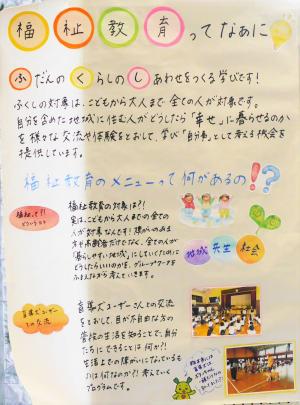 福祉教育ってなぁに
ふだんのくらしのしあわせをつくる学びです！
ふくしの対象は、こどもから大人まで全ての人が対象です。
自分を含めた地域に住む人がどうしたら「幸せ」に暮らせるのか
を様々な交流や体験をとおして、学び「自分事」として考える機会を
提供しています。
福祉教育のメニューって何があるの!?
福祉って?!
どういうコト
福祉教育の対象は?!
実は、こどもから大人までの全ての
人が対象なんです！障がいのある
方や高齢者だけでなく、全ての人が
「暮らしやすい地域」にしていくために
どうしたらいいのかを、グループワークを
ふまえながら考えていきます。
地域
共生
社会
盲導犬ユーザー
との交流
盲導犬ユーザーさんとの交流
をとおして、目が不自由な方の
普段の生活を知ることで、自分
たちにできることは何か?!
生活上での障がいになっているも
のは何なのか?!考えていく
プログラムです。